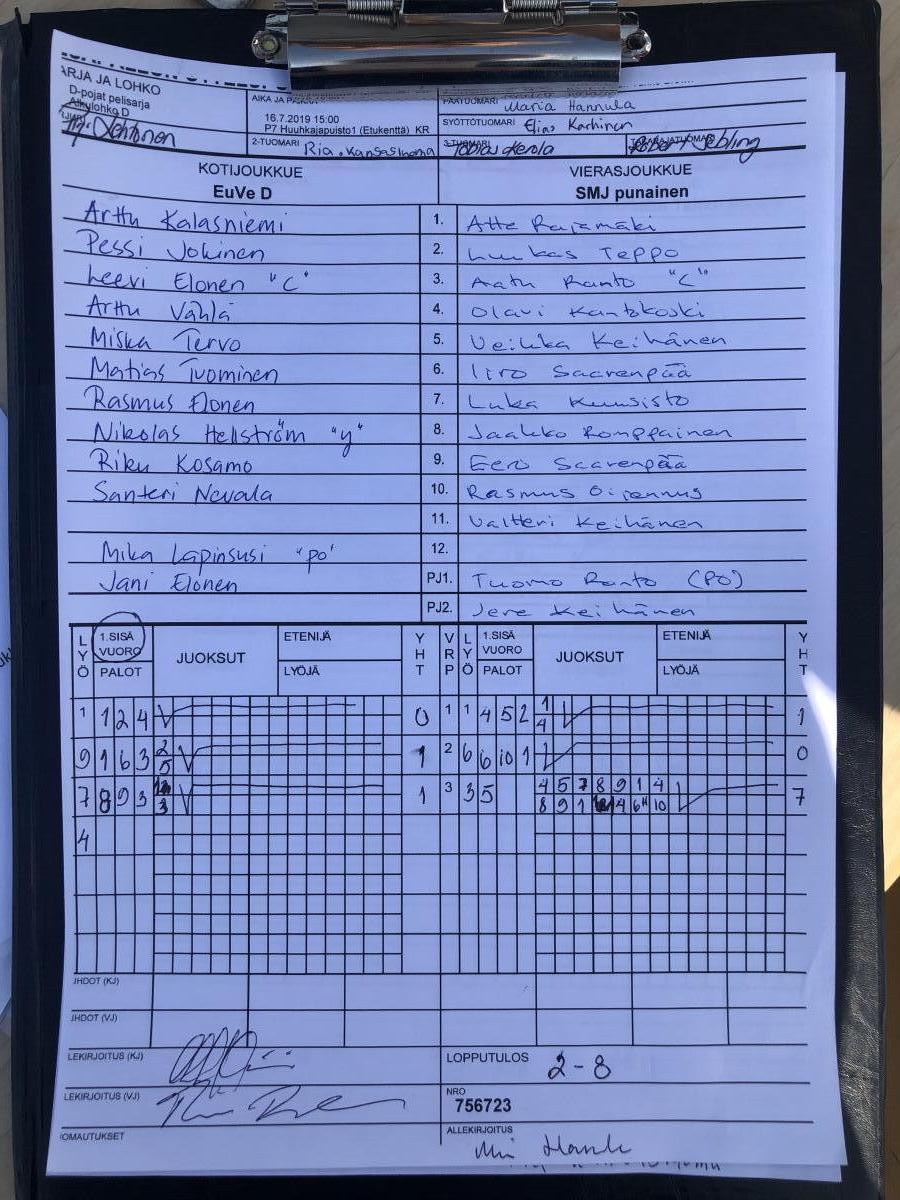 ARJA JA LOHKO
D-pojat pelisarja
Alkulohko D
Lehtonen
16.7.2019 15:00
P7 Huuhkajapuisto1 (Etukenttä) KR
2-TUOMARI
PÄÄTUOMARI Maria Hannula
SYÖTTÖTUOMARI Elias Karhinen
3-TUOMARI Tobias Kerola
KOTIJOUKKUE VIERASJOUKKUE
EuVe D SMJ punainen
Arttu Kalasniemi 1. Atte Rajamäki
Pessi Jokinen 2. Luukas Teppo
Leevi Elonen "C" 3. Aatu Ranto "C"
Arttu Vählä 4. Olavi Kantokoski
Miska Tervo 5. Veikka Keihänen
Matias Tuominen 6. Iiro Saarenpää
Rasmus Elonen 7. Luka Kuusisto
Nikolas Hellström "y" 8. Jaakko Romppainen
Riku Kosamo 9. Eero Saarenpää
Santeri Nevala 10. Rasmus
11. Valtteri Keihänen
Mika Lapinsusi "po" 12.
Jani Elonen PJ1. Tuomo Ranto (PO)
PJ2. Jere Keihänen
LYÖ 1.SISÄ VUORO PALOT JUOKSUT ETENIJÄ LYÖJÄ YHT VRP LYÖ 1.SISÄ VUORO PALOT JUOKSUT ETENIJÄ LYÖJÄ YHT
1 1 2 4 0 1 1 4 5 2 1 1
4
9 1 6 3 2 1 2 6 6 10 1 0
5
7 8 9 3 1 3 3 5 4 5 7 8 9 1 4 7
3 8 9 1 4 6 10
4
JHDOT (KJ)
JHDOT (VJ)
LEKIRJOITUS (KJ) LOPPUTULOS 2-8
LEKIRJOITUS (VJ) NRO
756723
OMAUTUKSET ALLEKIRJOITUS